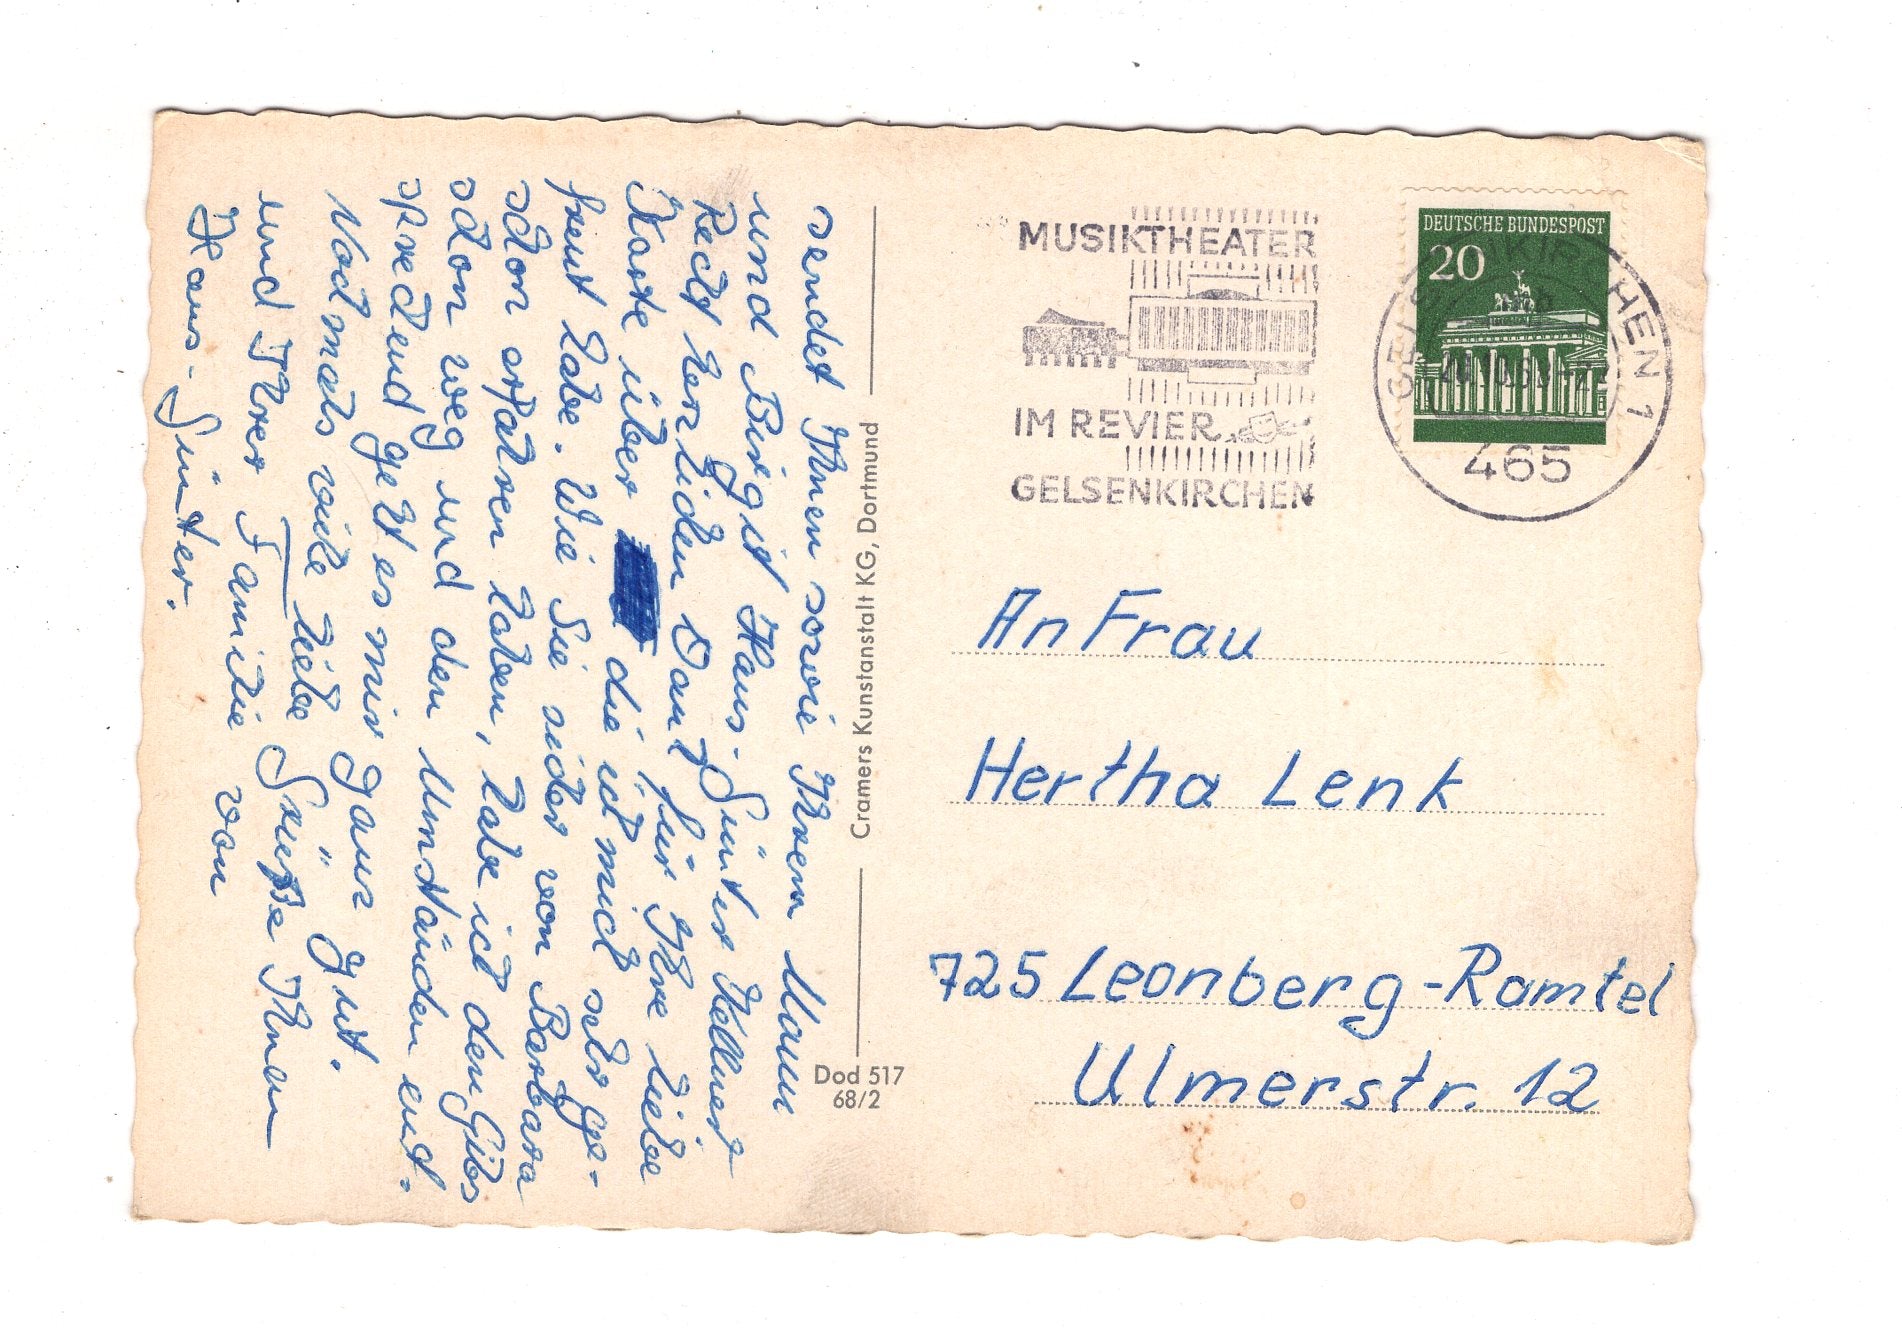 sendet Ihnen sowie Ihrem Mann
und Birgit Hans-Günter Kellner
Recht herzlichen Dank für Ihre liebe
Karte über die ich mich sehr ge-
freut habe. Wie Sie sicher von Barbara
schon erfahren haben, habe ich den Gibs
schon weg und den Umständen ent-
sprechend geht es mir ganz gut.
Nochmals viele liebe Grüße Ihnen
und Ihrer Familie von
Hans-Günter.
Cramers Kunstanstalt KG, Dortmund
Dod 517
68/2
MUSIKTHEATER
IM REVIER
GELSENKIRCHEN
DEUTSCHE BUNDESPOST
20
GELSENKIRCHEN 1
465
An Frau
Hertha Lenk
725 Leonberg-Ramtel
Ulmerstr. 12